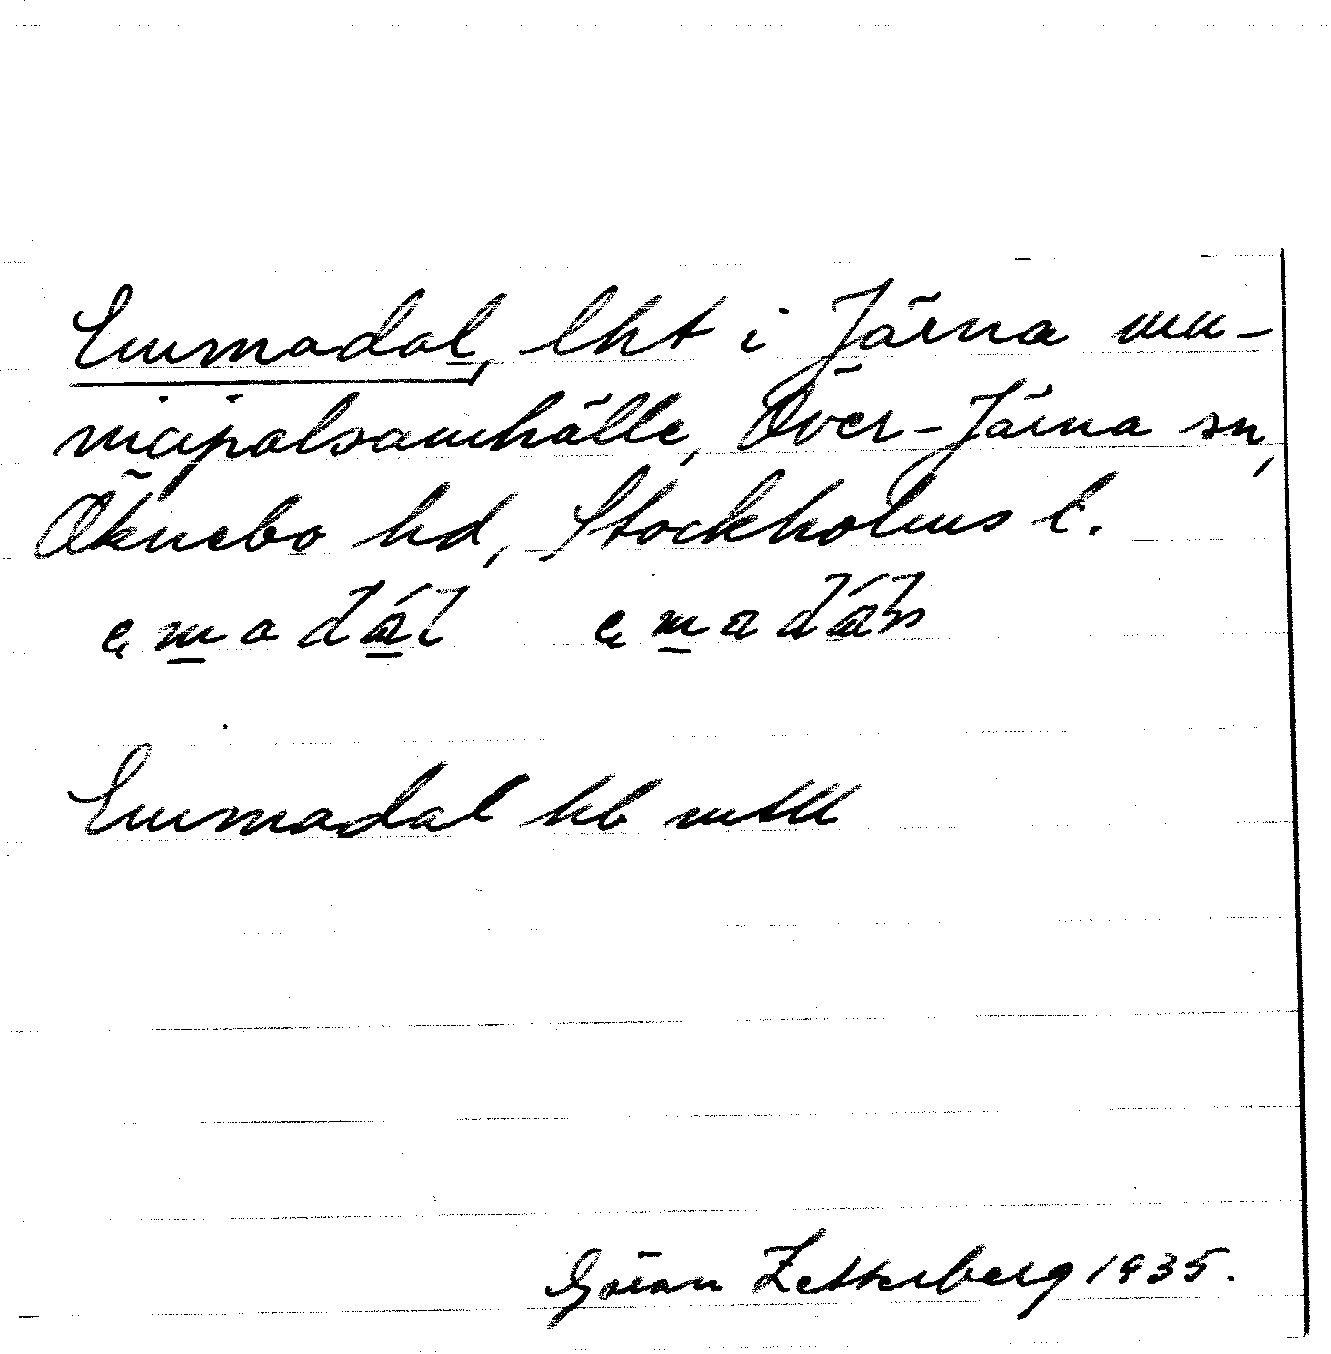 Emmadal, lht i Järna mu-
nicipalsamhälle, Över-Järna sn,
Öknebo hd, Stockholms l.
Emmadal hb mtll
Göran Zetterberg 1935.